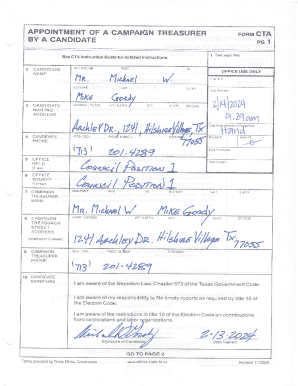 APPOINTMENT OF A CAMPAIGN TREASURER
BY A CANDIDATE
FORM CTA
PG 1
See CTA Instruction Guide for detailed instructions.
1 Total pages filed:
2 CANDIDATE
NAME
Mr. Michael W
Mike Goody
OFFICE USE ONLY
3 CANDIDATE
MAILING
ADDRESS
Archley Dr. 1241 Hilshire Village, Tx
77055
9:29am
4 CANDIDATE
PHONE
(713) 201-4289
5 OFFICE
HELD
Council Position 1
6 OFFICE
SOUGHT
Council Position 1
7 CAMPAIGN
TREASURER
NAME
Mr. Michael W Mike Goody
8 CAMPAIGN
TREASURER
STREET
ADDRESS
1241 Archley Dr. Hilshire Village Tx
77055
9 CAMPAIGN
TREASURER
PHONE
(713) 201-4289
10 CANDIDATE
SIGNATURE
I am aware of the Nepotism Law, Chapter 573 of the Texas Government Code.
I am aware of my responsibility to file timely reports as required by title 15 of
the Election Code.
I am aware of the restrictions in title 15 of the Election Code on contributions
from corporations and labor organizations.
2-13-2024
Signature of Candidate
Date Signed
GO TO PAGE 2
Forms provided by Texas Ethics Commission
www.ethics.state.tx.us